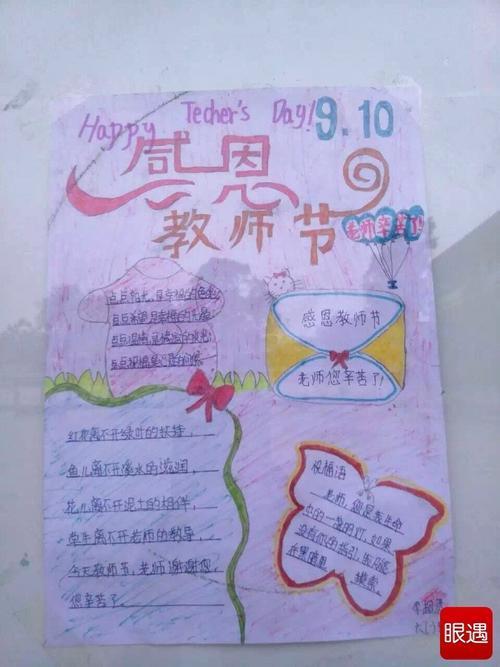 Happy Techer's Day! 9.10
感恩
教师节
老师辛苦了!
点点阳光,是幸福的色彩
感恩教师节
老师您辛苦了!
红花离不开绿叶的扶持,
鱼儿离不开溪水的滋润,
花儿离不开泥土的相伴,
学生离不开老师的教导,
今天教师节,老师谢谢您,
您辛苦了。
祝福语
老师,您是我生命
中的一盏明灯,如果
没有你的指引,我只能
在黑暗里
摸索。
眼遇